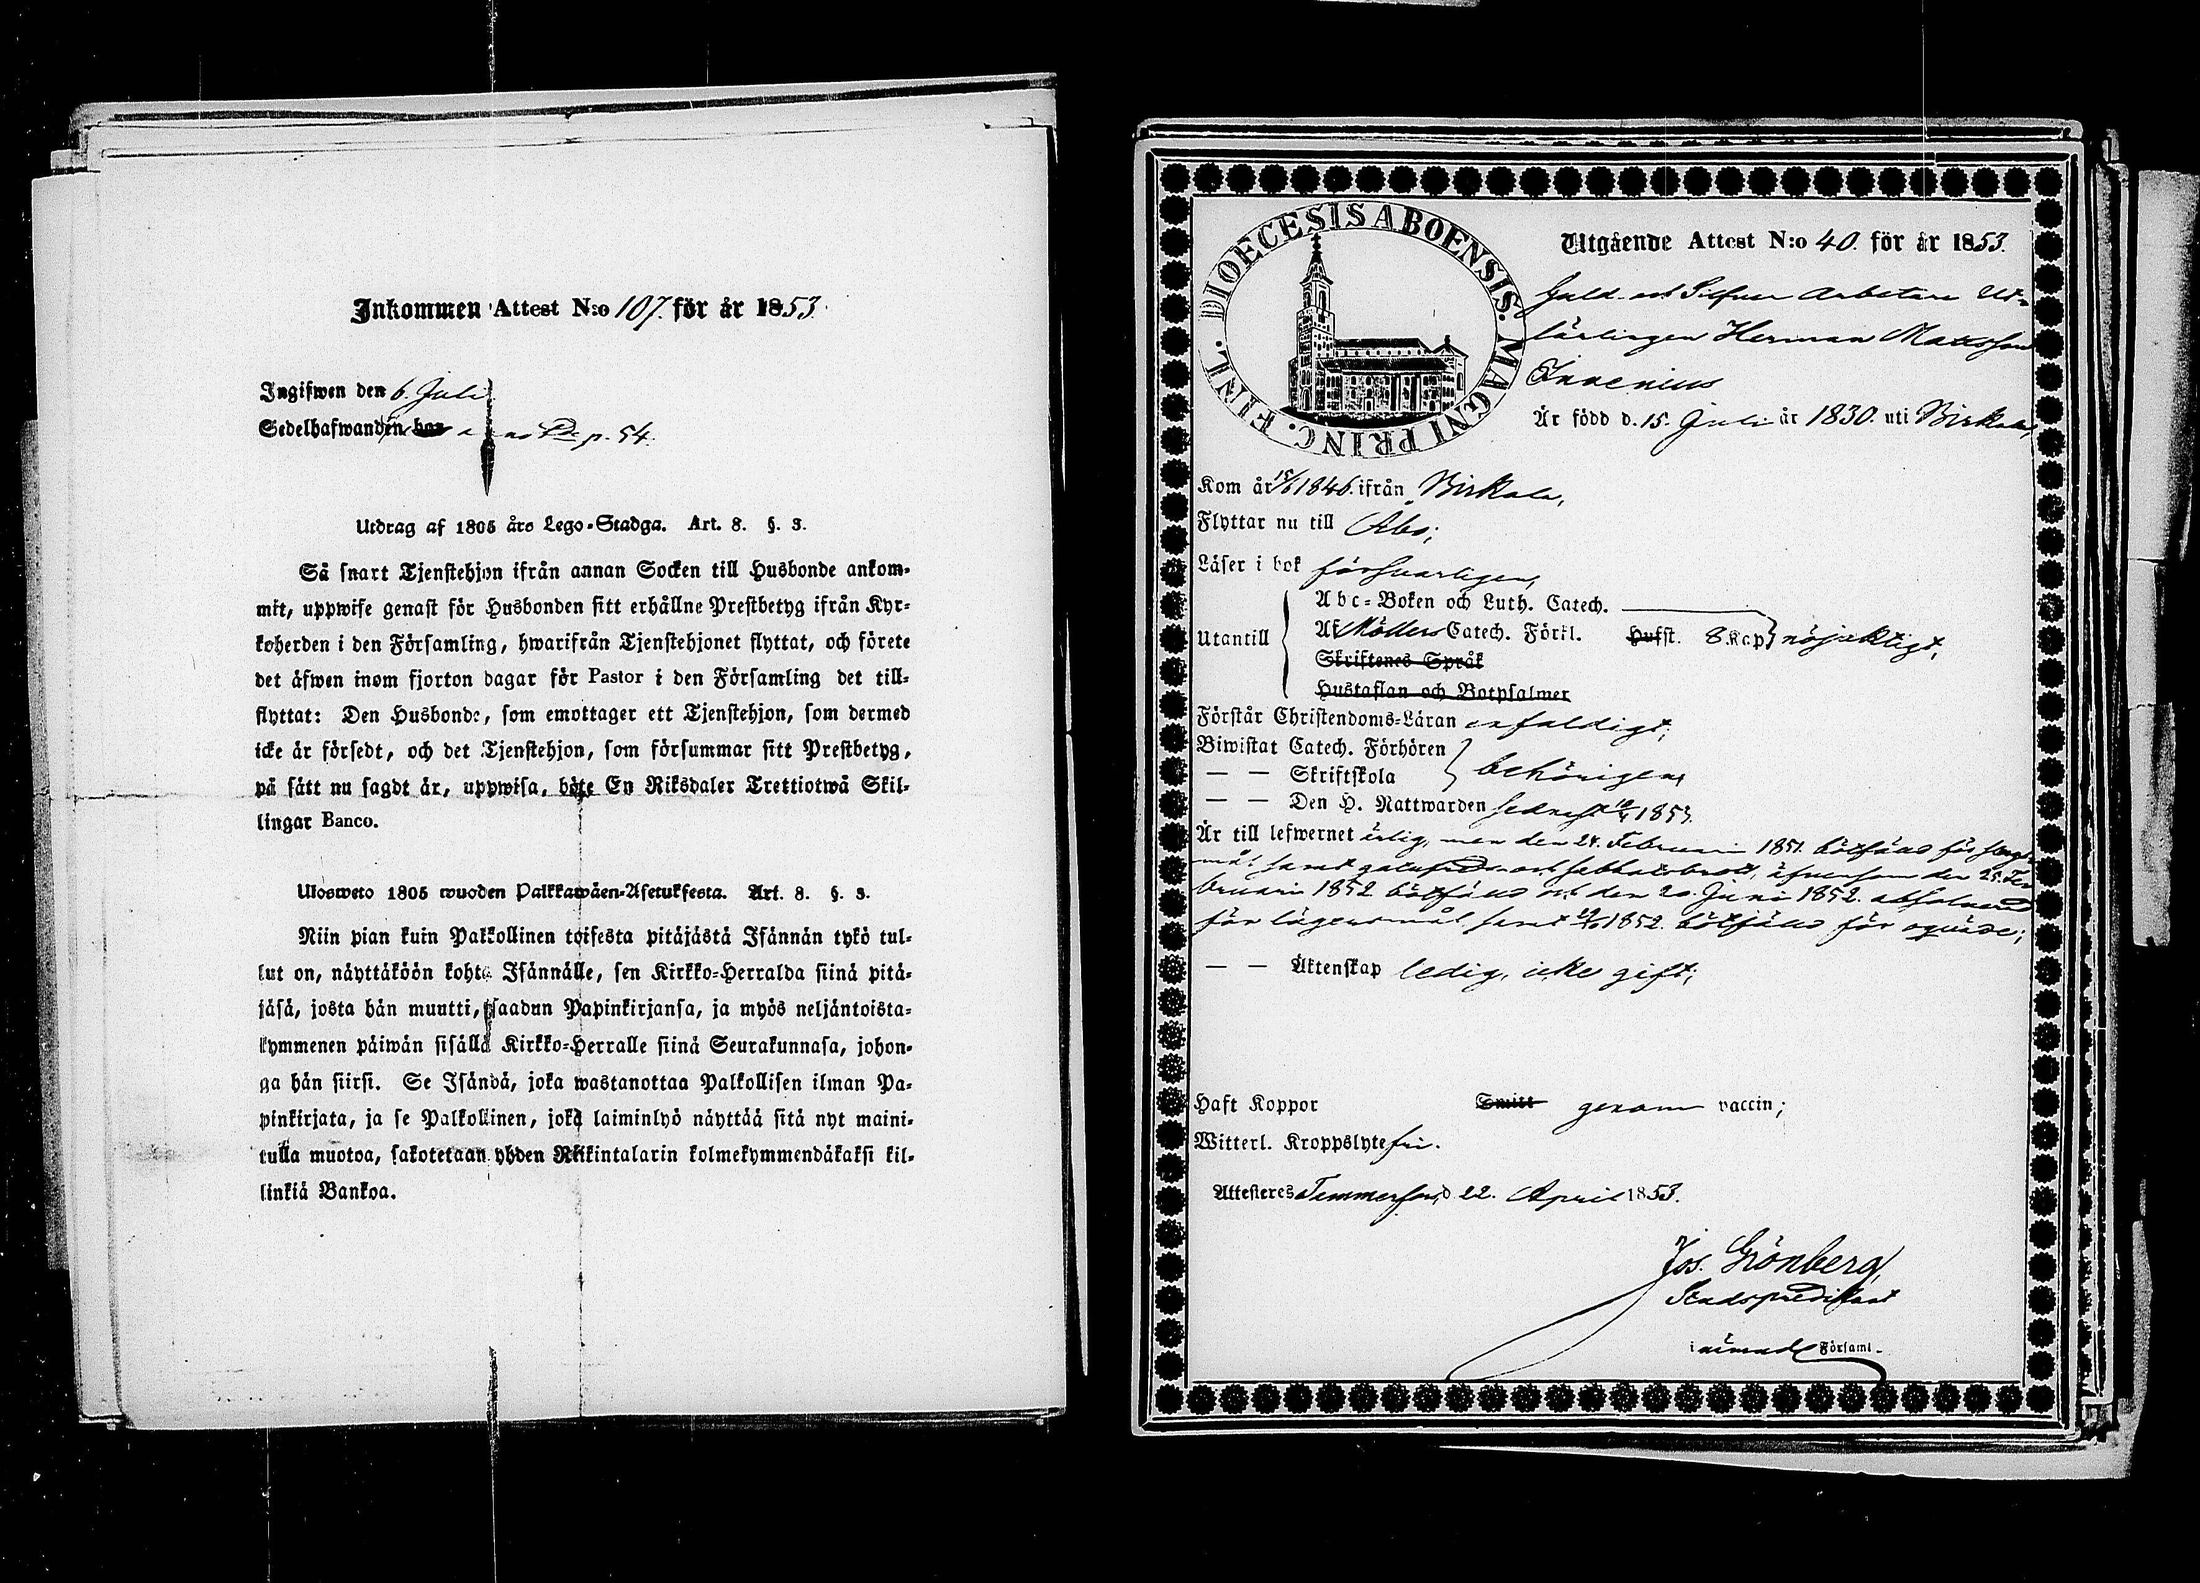 Inkommen Attest N:o 107. för år 1853.
Ingifwen den 6. Juli
Sedelhafwanden har p. 54.
Utdrag af 1805 års Lego-Stadga. Art. 8. §. 3.
Så snart Tjenstehjon ifrån annan Socken till Husbonde ankom-
mit, uppwise genast för Husbonden sitt erhållne Prestbetyg ifrån Kyr-
koherden i den Församling, hwarifrån Tjenstehjonet flyttat, och förete
det äfwen inom fjorton dagar för Pastor i den Församling det till-
flyttat: Den Husbonde, som emottager ett Tjenstehjon, som dermed
icke är försedt, och det Tjenstehjon, som försummar sitt Prestbetyg,
på sätt nu sagdt är, uppwisa, böte En Riksdaler Trettiotwå Skil-
lingar Banco.
Ulosweto 1805 wuoden Palkkawäen-Asetuksesta. Art. 8. §. 3.
Niin pian kuin Palkollinen toisesta pitäjästä Isännän tykö tul-
lut on, näyttäköön kohta Isännälle, sen Kirkko-Herralda siinä pitä-
jäsä, josta hän muutti, saadun Papinkirjansa, ja myös neljäntoista-
kymmenen päiwän sisällä Kirkko-Herralle siinä Seurakunnasa, johon-
ga hän siirsi. Se Isändä, joka wastanottaa Palkollisen ilman Pa-
pinkirjata, ja se Palkollinen, joka laiminlyö näyttää sitä nyt maini-
tulla muotoa, sakotetaan yhden Riikintalarin kolmekymmendäkaksi kil-
linkiä Bankoa.
DIOECESIS ABOENSIS. MAGNI PRINC. FINL.
Utgående Attest N:o 40. för år 1853.
Guld- och Silfver Arbetare Ut-
lärlingen Herman Mattsson
Är född d. 15. Juli år 1830. uti Birkala,
Kom år 15/6 1846. ifrån Birkala,
Flyttar nu till Åbo;
Läser i bok försvarligen,
Utantill
Abc-Boken och Luth. Catech.
Af Möllers Catech. Förkl. Hufst. 8 Kap nöjaktigt,
Skriftenes Språk
Hustaflan och Botpsalmer
Förstår Christendoms-Läran enfaldigt;
Biwistat Catech. Förhören
— — Skriftskola behörigen,
— — Den H. Nattwarden sednast 1853.
Är till lefwernet ärlig, men den 24. Februari 1851. bötfäld för slags-
mål samt gatufreds- och sabbatsbrott, äfvensom den 25. Fe-
bruari 1852 bötfäld och den 20. Juni 1852. absolverad
för lägersmål samt 1852. bötfäld för oqväde;
— — Äktenskap ledig, icke gift;
Haft Koppor Smitt genom vaccin;
Witterl. Kroppslyte fri.
Attesteras Tammerfors, d. 22. April 1853.
Jos. Grönberg,
Stadspredikant
i nämnde Församl.